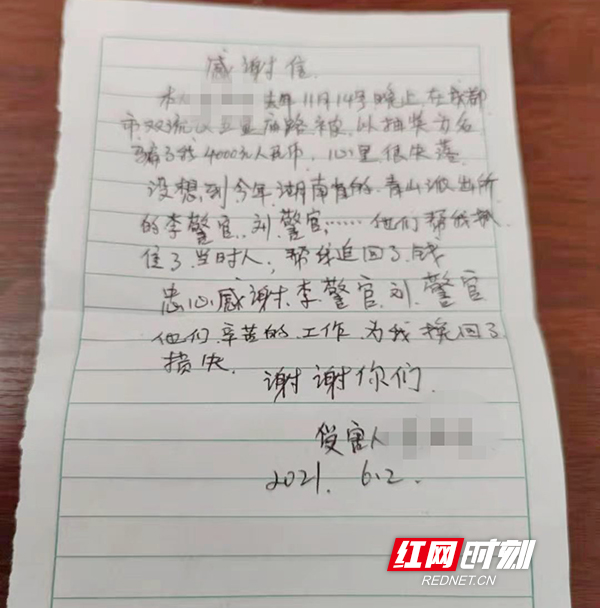 感谢信.
本人 去年11月14号晚上,在成都
市双流区 庙路被,以抽奖为名
骗了我4000元人民币.心里很失落
没想到今年湖南省的.青山派出所
的李警官.刘警官,……他们帮我抓
住了.当时人,帮我追回了.钱
忠心感谢.李警官.刘.警官
他们.辛苦的.工作.为我挽回了.
损失.
谢谢你们.
受害人
2021.6.2.
红网时刻
REDNET.CN